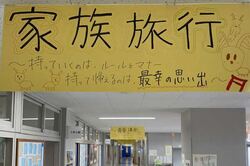 家族旅行
持っていくのは、ルールとマナー
持って帰るのは、最幸の思い出